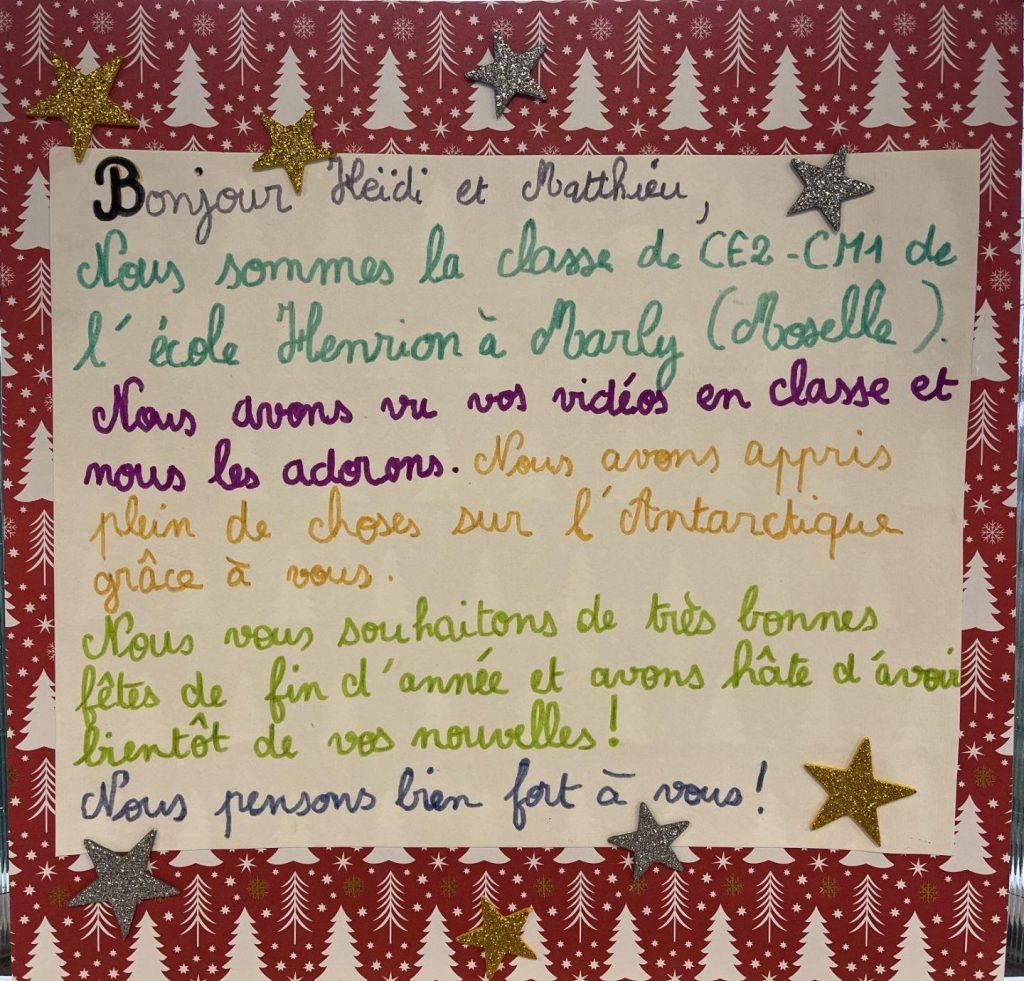 Bonjour Heïdi et Matthieu,
Nous sommes la classe de CE2-CM1 de
l'école Henrion à Marly (Moselle).
Nous avons vu vos vidéos en classe et
nous les adorons. Nous avons appris
plein de choses sur l'Antarctique
grâce à vous.
Nous vous souhaitons de très bonnes
fêtes de fin d'année et avons hâte d'avoir
bientôt de vos nouvelles !
Nous pensons bien fort à vous !